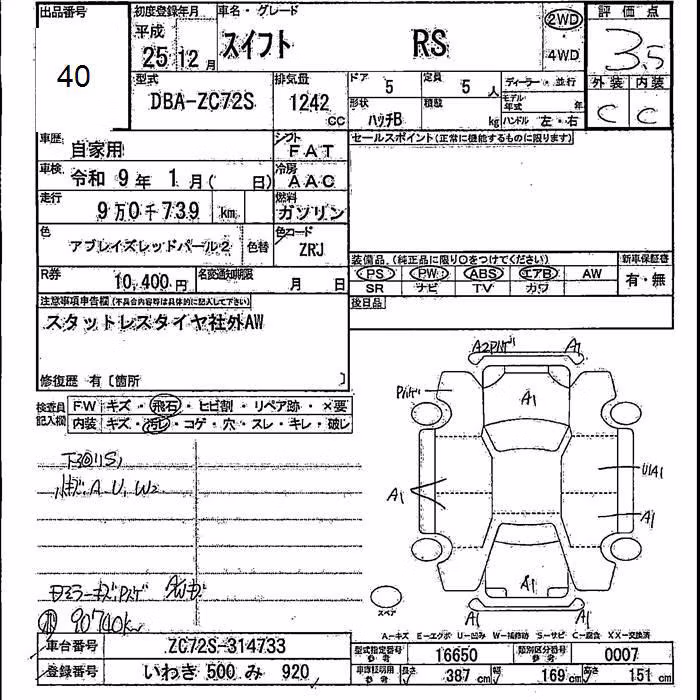 出品番号
40
初度登録年月
平成
25 12月
車名・グレード
スイフト RS
2WD
・
4WD
評価点
3.5
外装 内装
C C
型式
DBA-ZC72S
排気量
1242 cc
ドア 5
定員 5 人
形状 ハッチB
積載 kg
ディーラー・並行
モデル年式 年
ハンドル 左・右
車歴 自家用
シフト FAT
セールスポイント(正常に機能するものに限ります)
車検 令和 9年 1月( 日)
冷房 AAC
走行 9万0千739 km
燃料 ガソリン
色 アブレイズレッドパール2 色替
色コード ZRJ
R券 10,400円
名変通知期限 月 日
装備品(純正品に限り○をつけてください)
PS PW ABS エアB AW
SR ナビ TV カワ
新車保証書
有・無
後日品
注意事項申告欄(不具合内容等は具体的に記入して下さい)
スタットレスタイヤ社外AW
修復歴 有〔箇所 〕
検査員記入欄
FW キズ・飛石・ヒビ割・リペア跡・×要
内装 キズ・汚レ・コゲ・穴・スレ・キレ・破レ
A.U.W2
90740km
A1
A1
A1
U1A1
A1
A1
A1
A1
スペア
A-キズ E-エクボ U-凹み W-補修跡 S-サビ C-腐食 XX-交換済
車台番号 ZC72S-314733
登録番号 いわき 500 み 920
型式指定番号 参考 16650
類別区分番号 参考 0007
車庫証明用 参考 長さ 387 cm 幅 169 cm 高さ 151 cm